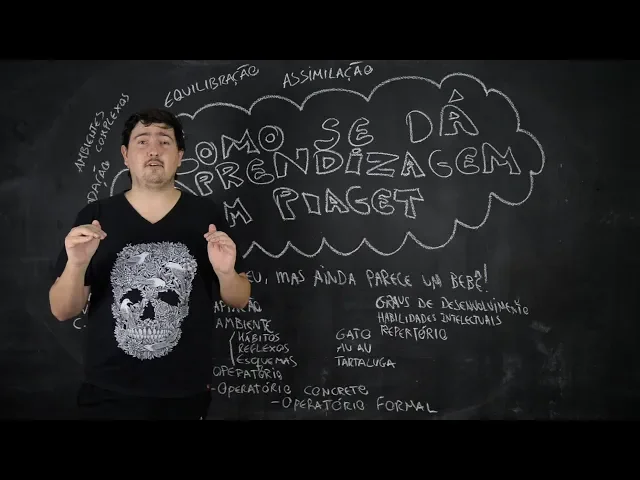 EQUILIBRAÇÃO
ASSIMILAÇÃO
AMBIENTES
COMPLEXOS
COMO SE DÁ
APRENDIZAGEM
EM PIAGET
MAS AINDA PARECE UM BEBÊ!
AMBIENTE
HÁBITOS
REFLEXOS
ESQUEMAS
OPERATÓRIO
- OPERATÓRIO CONCRETO
- OPERATÓRIO FORMAL
GATO
AU AU
TARTALUGA
GRAUS DE DESENVOLVIMENTO
HABILIDADES INTELECTUAIS
REPERTÓRIO